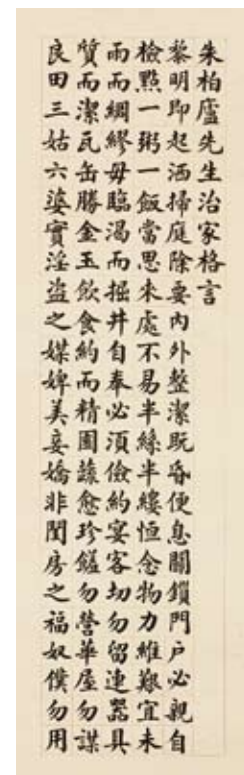 朱柏廬先生治家格言
黎明即起洒掃庭除要內外整潔既昏便息關鎖門戶必親自
檢點一粥一飯當思來處不易半絲半縷恒念物力維艱宜未
雨而綢繆毋臨渴而掘井自奉必須儉約宴客切勿留連器具
質而潔瓦缶勝金玉飲食約而精園蔬愈珍饈勿營華屋勿謀
良田三姑六婆實淫盜之媒婢美妾嬌非閨房之福奴僕勿用